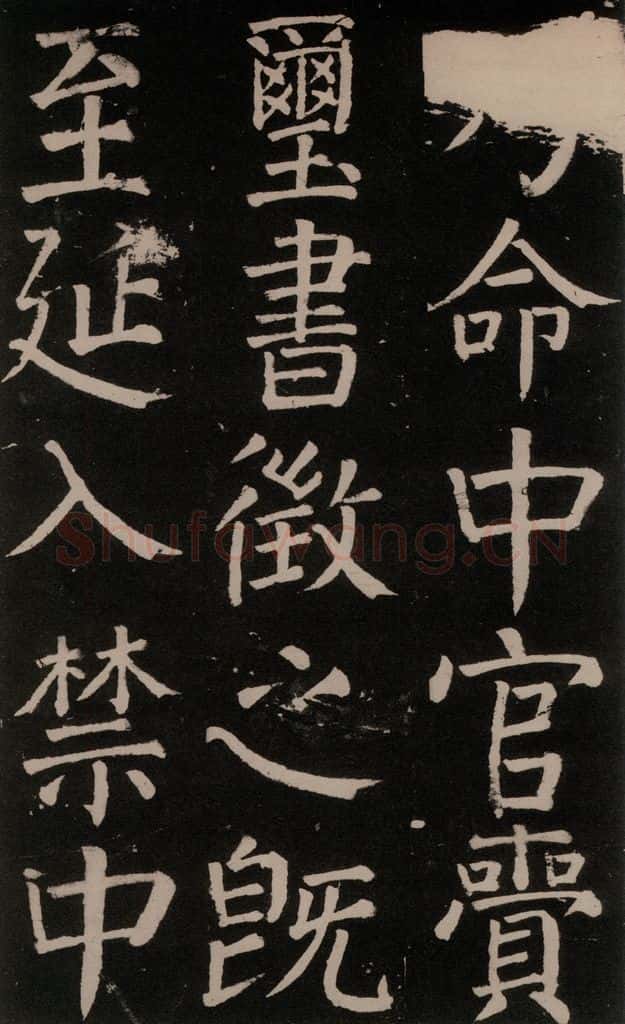 命中官賷
璽書徵之既
至延入禁中
Shufawang.CN